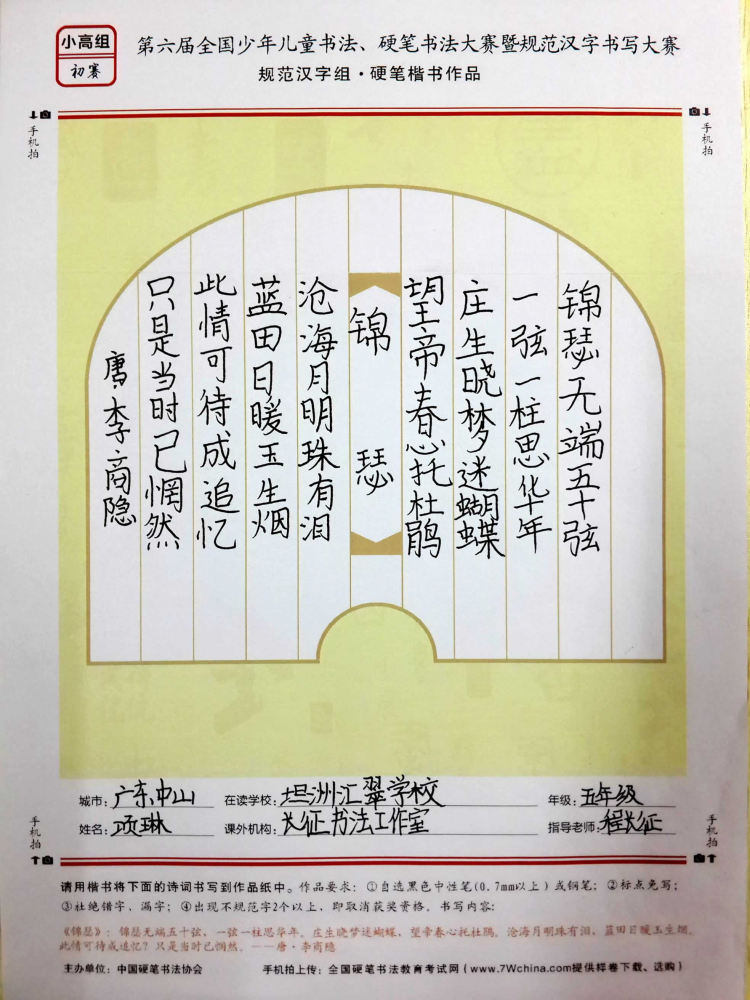 小高组
初赛
第六届全国少年儿童书法、硬笔书法大赛暨规范汉字书写大赛
规范汉字组·硬笔楷书作品
手机拍
手机拍
锦瑟无端五十弦
一弦一柱思华年
庄生晓梦迷蝴蝶
望帝春心托杜鹃
锦瑟
沧海月明珠有泪
蓝田日暖玉生烟
此情可待成追忆
只是当时已惘然
唐·李商隐
城市：广东中山
在读学校：坦洲汇翠学校
年级：五年级
姓名：项琳
课外机构：长征书法工作室
指导老师：程长征
手机拍
手机拍
请用楷书将下面的诗词书写到作品纸中。作品要求：①自选黑色中性笔(0.7mm以上)或钢笔；②标点免写；
③杜绝错字、漏字；④出现不规范字2个以上，即取消获奖资格。书写内容：
《锦瑟》：锦瑟无端五十弦，一弦一柱思华年。庄生晓梦迷蝴蝶，望帝春心托杜鹃。沧海月明珠有泪，蓝田日暖玉生烟。
此情可待成追忆？只是当时已惘然。——唐·李商隐
主办单位：中国硬笔书法协会
手机拍上传：全国硬笔书法教育考试网（www.7Wchina.com提供样卷下载、选购）